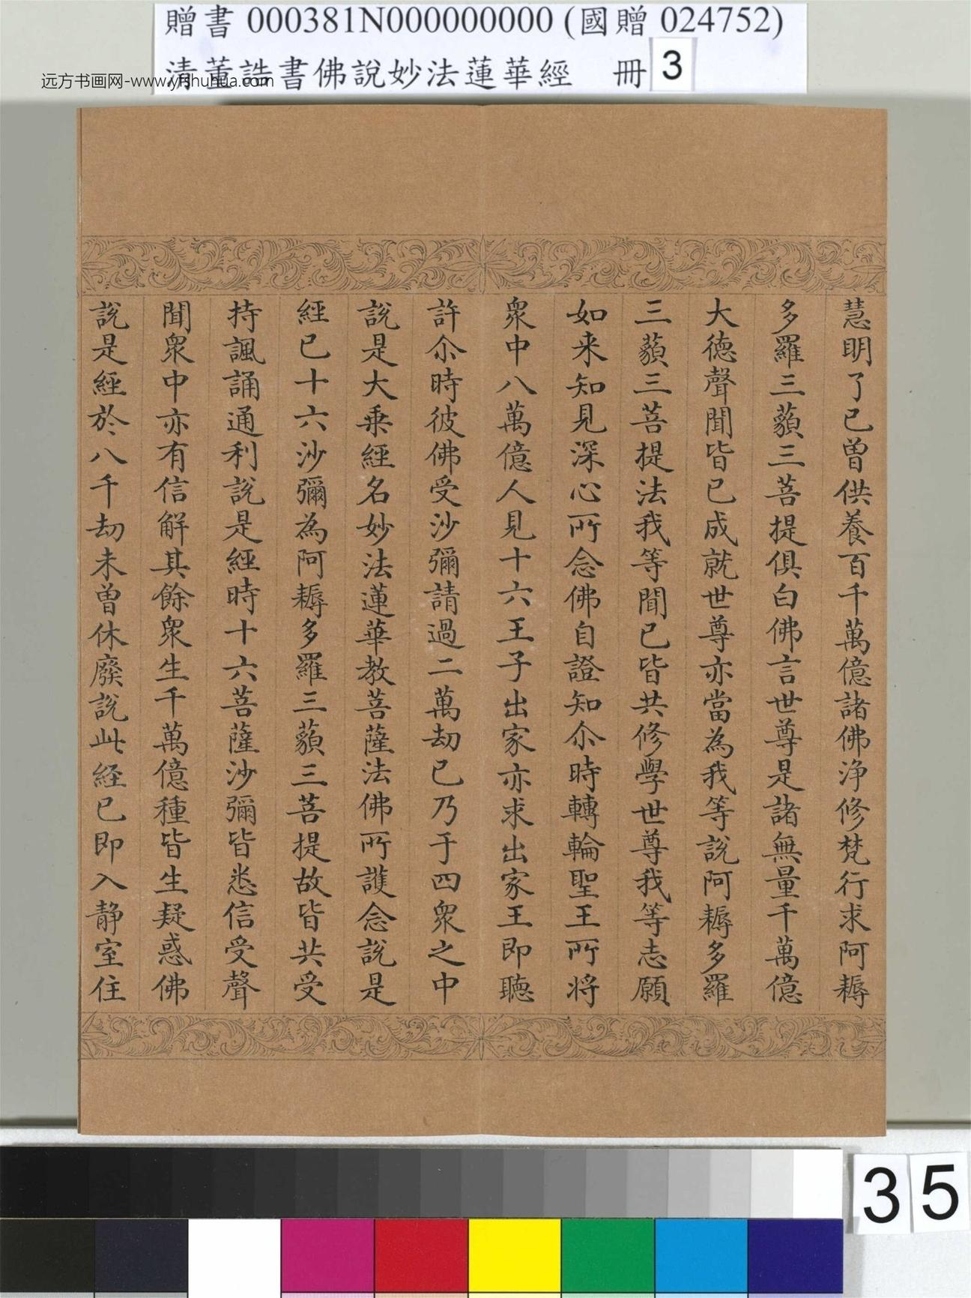 贈書 000381N000000000 (國贈 024752)
清董誥書佛說妙法蓮華經 冊 3
远方书画网-www.yfshuhua.com
慧明了已曾供養百千萬億諸佛淨修梵行求阿耨
多羅三藐三菩提俱白佛言世尊是諸無量千萬億
大德聲聞皆已成就世尊亦當為我等說阿耨多羅
三藐三菩提法我等聞已皆共修學世尊我等志願
如来知見深心所念佛自證知尒時轉輪聖王所將
衆中八萬億人見十六王子出家亦求出家王即聽
許尒時彼佛受沙彌請過二萬劫已乃于四衆之中
說是大乘經名妙法蓮華教菩薩法佛所護念說是
經已十六沙彌為阿耨多羅三藐三菩提故皆共受
持諷誦通利說是經時十六菩薩沙彌皆悉信受聲
聞衆中亦有信解其餘衆生千萬億種皆生疑惑佛
說是經於八千劫未曾休廢說此經已即入靜室住
35